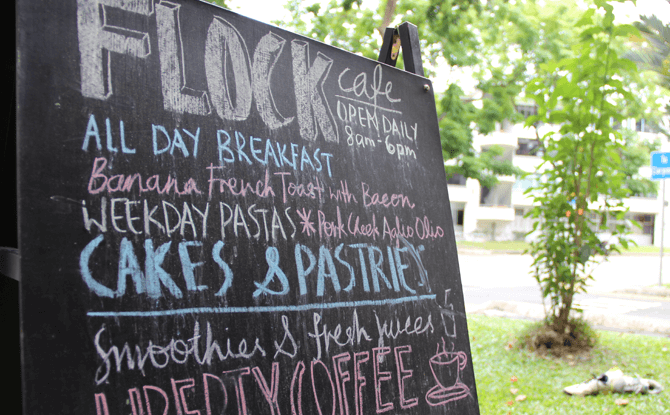 FLOCK
cafe
OPEN DAILY
8am-6pm
ALL DAY BREAKFAST
Banana French Toast with Bacon
WEEKDAY PASTAS * Pork Cheek Aglio Olio
CAKES & PASTRIES
Smoothies & fresh juices
LIBERTY COFFEE